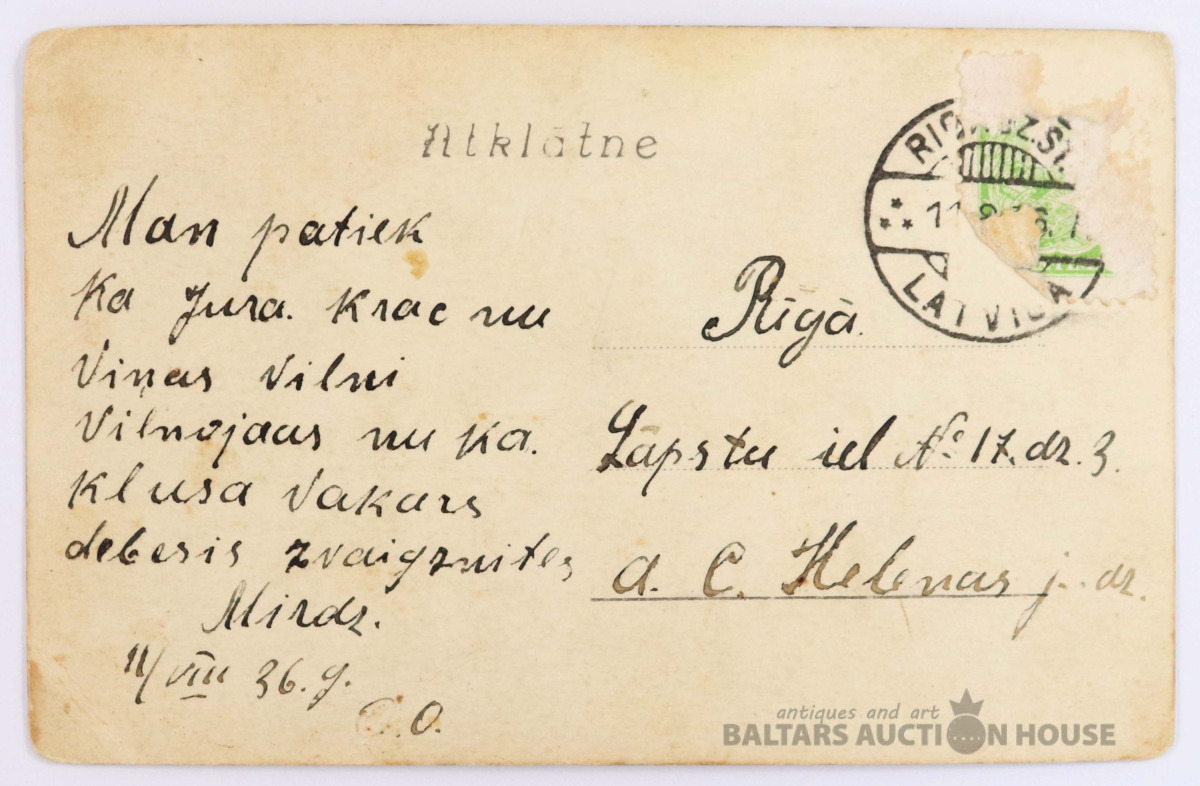 Atklātne
Man patiek
Ka Jura. Krac nu
Viņas Vilni
Vilnojaas nu ka.
Klusa Vakars
debesis zvaigznites
Mirdz.
11/VIII 36. g.
O.
LATVIJA
Rīgā.
Lāpstu iel № 17. dz. 3.
A. C. Helenas j. dz.
antiques and art
BALTARS AUCTION HOUSE